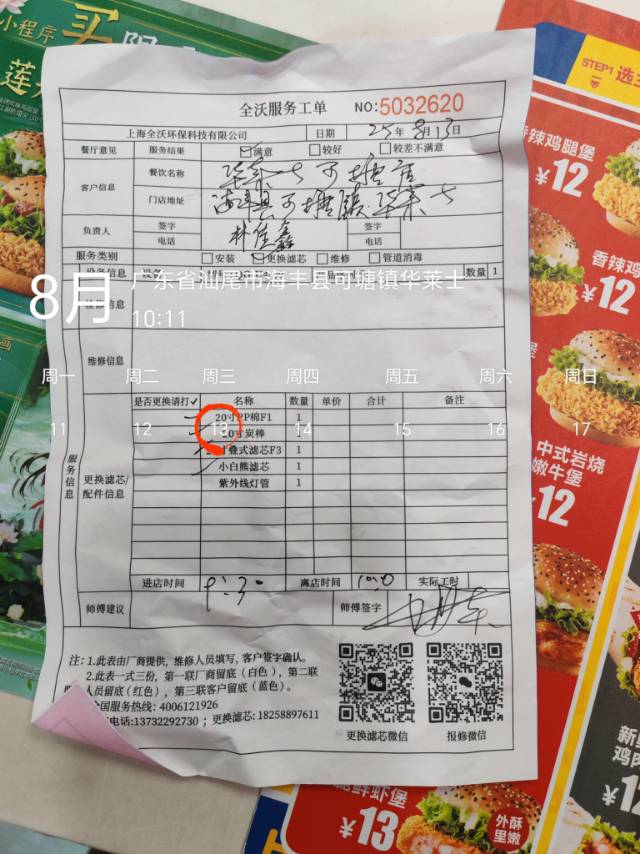 小程序 买
莲
STEP1 选
香辣鸡腿堡
¥12
香辣鸡
¥12
中式岩烧
嫩牛堡
¥12
新
鸡肉
¥12
鲜虾堡
¥13
外酥
里嫩
全沃服务工单 NO:5032620
上海全沃环保科技有限公司 日期 25年8月13日
餐厅意见 服务结果 满意 较好 较差不满意
客户信息 餐饮名称 华莱士可塘店
门店地址 海丰县可塘镇华莱士
负责人 签字 林佳鑫 签字
电话 电话
服务类别 安装 更换滤芯 维修 管道消毒
设备信息 设备 数量 1
8月 广东省汕尾市海丰县可塘镇华莱士
10:11
维修信息
周一 周二 周三 周四 周五 周六 周日
11 12 13 14 15 16 17
服务信息
更换滤芯/
配件信息
是否更换请打✓ 名称 数量 单价 合计 备注
20寸PP棉F1 1
20寸炭棒 1
叠式滤芯F3 1
小白熊滤芯 1
紫外线灯管 1
进店时间 9:30 离店时间 10:10 实际工时
师傅建议 师傅签字
注：1.此表由厂商提供，维修人员填写，客户签字确认。
2.此表一式三份，第一联厂商留底（白色），第二联
人员留底（红色），第三联客户留底（蓝色）。
全国服务热线：4006121926
电话:13732292730；更换滤芯: 18258897611
更换滤芯微信 报修微信